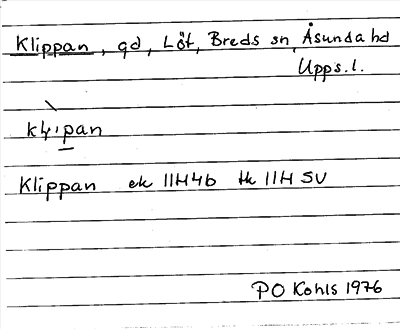 Klippan, gd, Löt, Breds sn, Åsunda hd
Upps.l.
Klippan ek 11H4b tk 11H SV
PO Kohls 1976